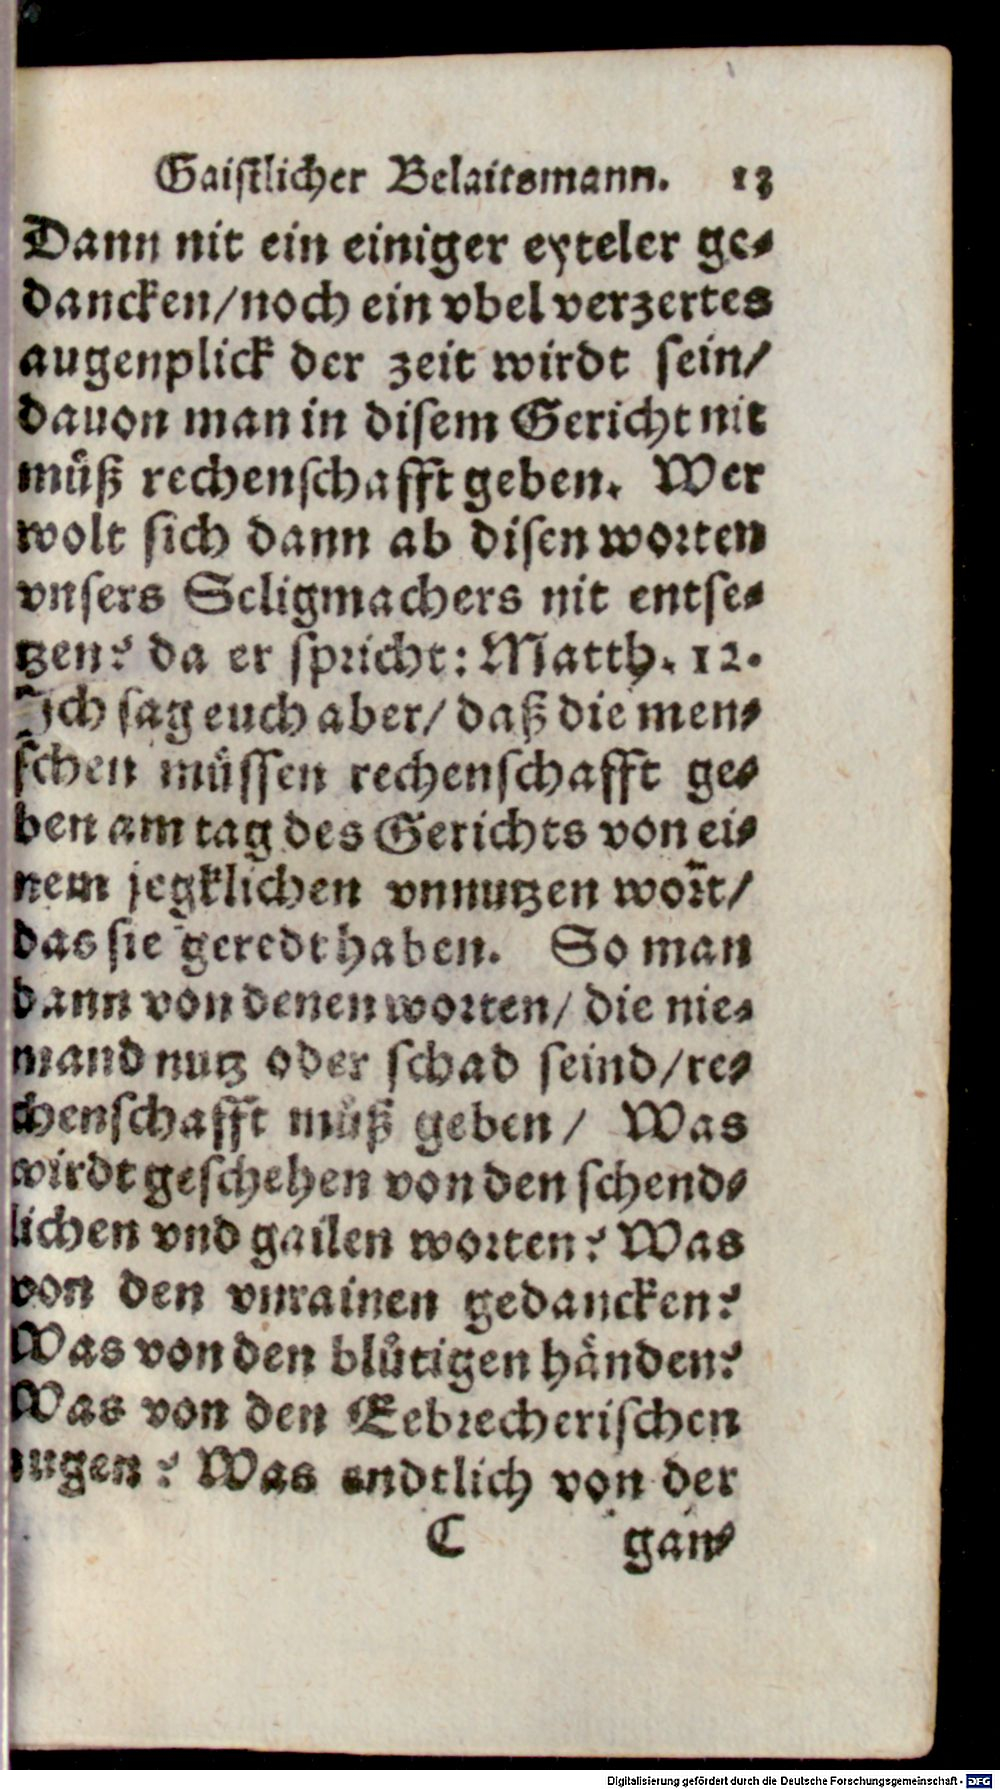 Gaistlicher Belaitsmann. 13
Dann nit ein einiger eyteler ge-
dancken/noch ein vbel verzertes
augenplick der zeit wirdt sein/
dauon man in disem Gericht nit
můß rechenschafft geben. Wer
wolt sich dann ab disen worten
vnsers Seligmachers nit entse-
tzen? da er spricht: Matth. 12.
Ich sag euch aber/ daß die men-
schen můssen rechenschafft ge-
ben am tag des Gerichts von ei-
nem jegklichen vnnutzen wort/
das sie geredt haben. So man
dann von denen worten/ die nie-
mand nutz oder schad seind/re-
chenschafft můß geben/ Was
wirdt geschehen von den schend-
lichen vnd gailen worten? Was
von den vnrainen gedancken?
Was von den blůtigen hånden?
Was von den Eebrecherischen
augen? Was endtlich von der
C gan-
Digitalisierung gefördert durch die Deutsche Forschungsgemeinschaft - DFG